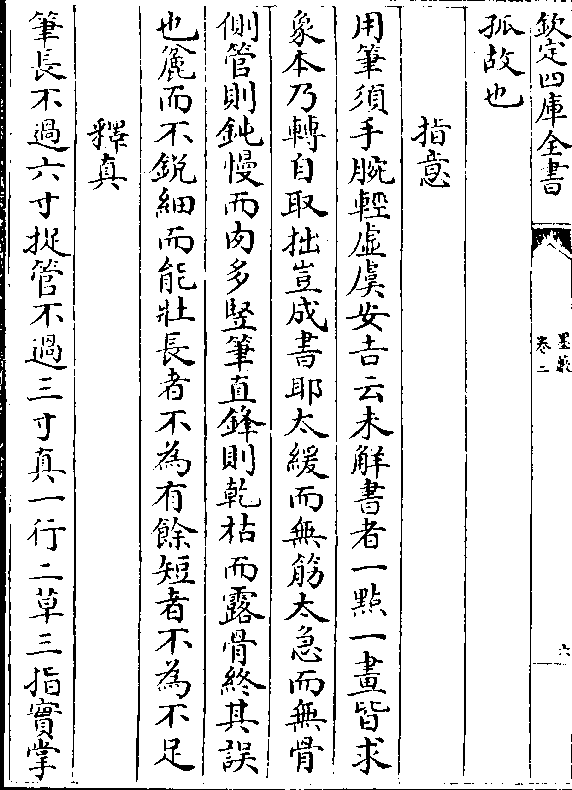 欽定四庫全書
墨藪
卷二
六
孤故也
指意
用筆須手腕輕虛虞安吉云未解書者一點一畫皆求
象本乃轉自取拙豈成書耶太緩而無筋太急而無骨
側管則鈍慢而肉多豎筆直鋒則乾枯而露骨終其誤
也麄而不鋭細而能壯長者不為有餘短者不為不足
釋真
筆長不過六寸捉管不過三寸真一行二草三指實掌